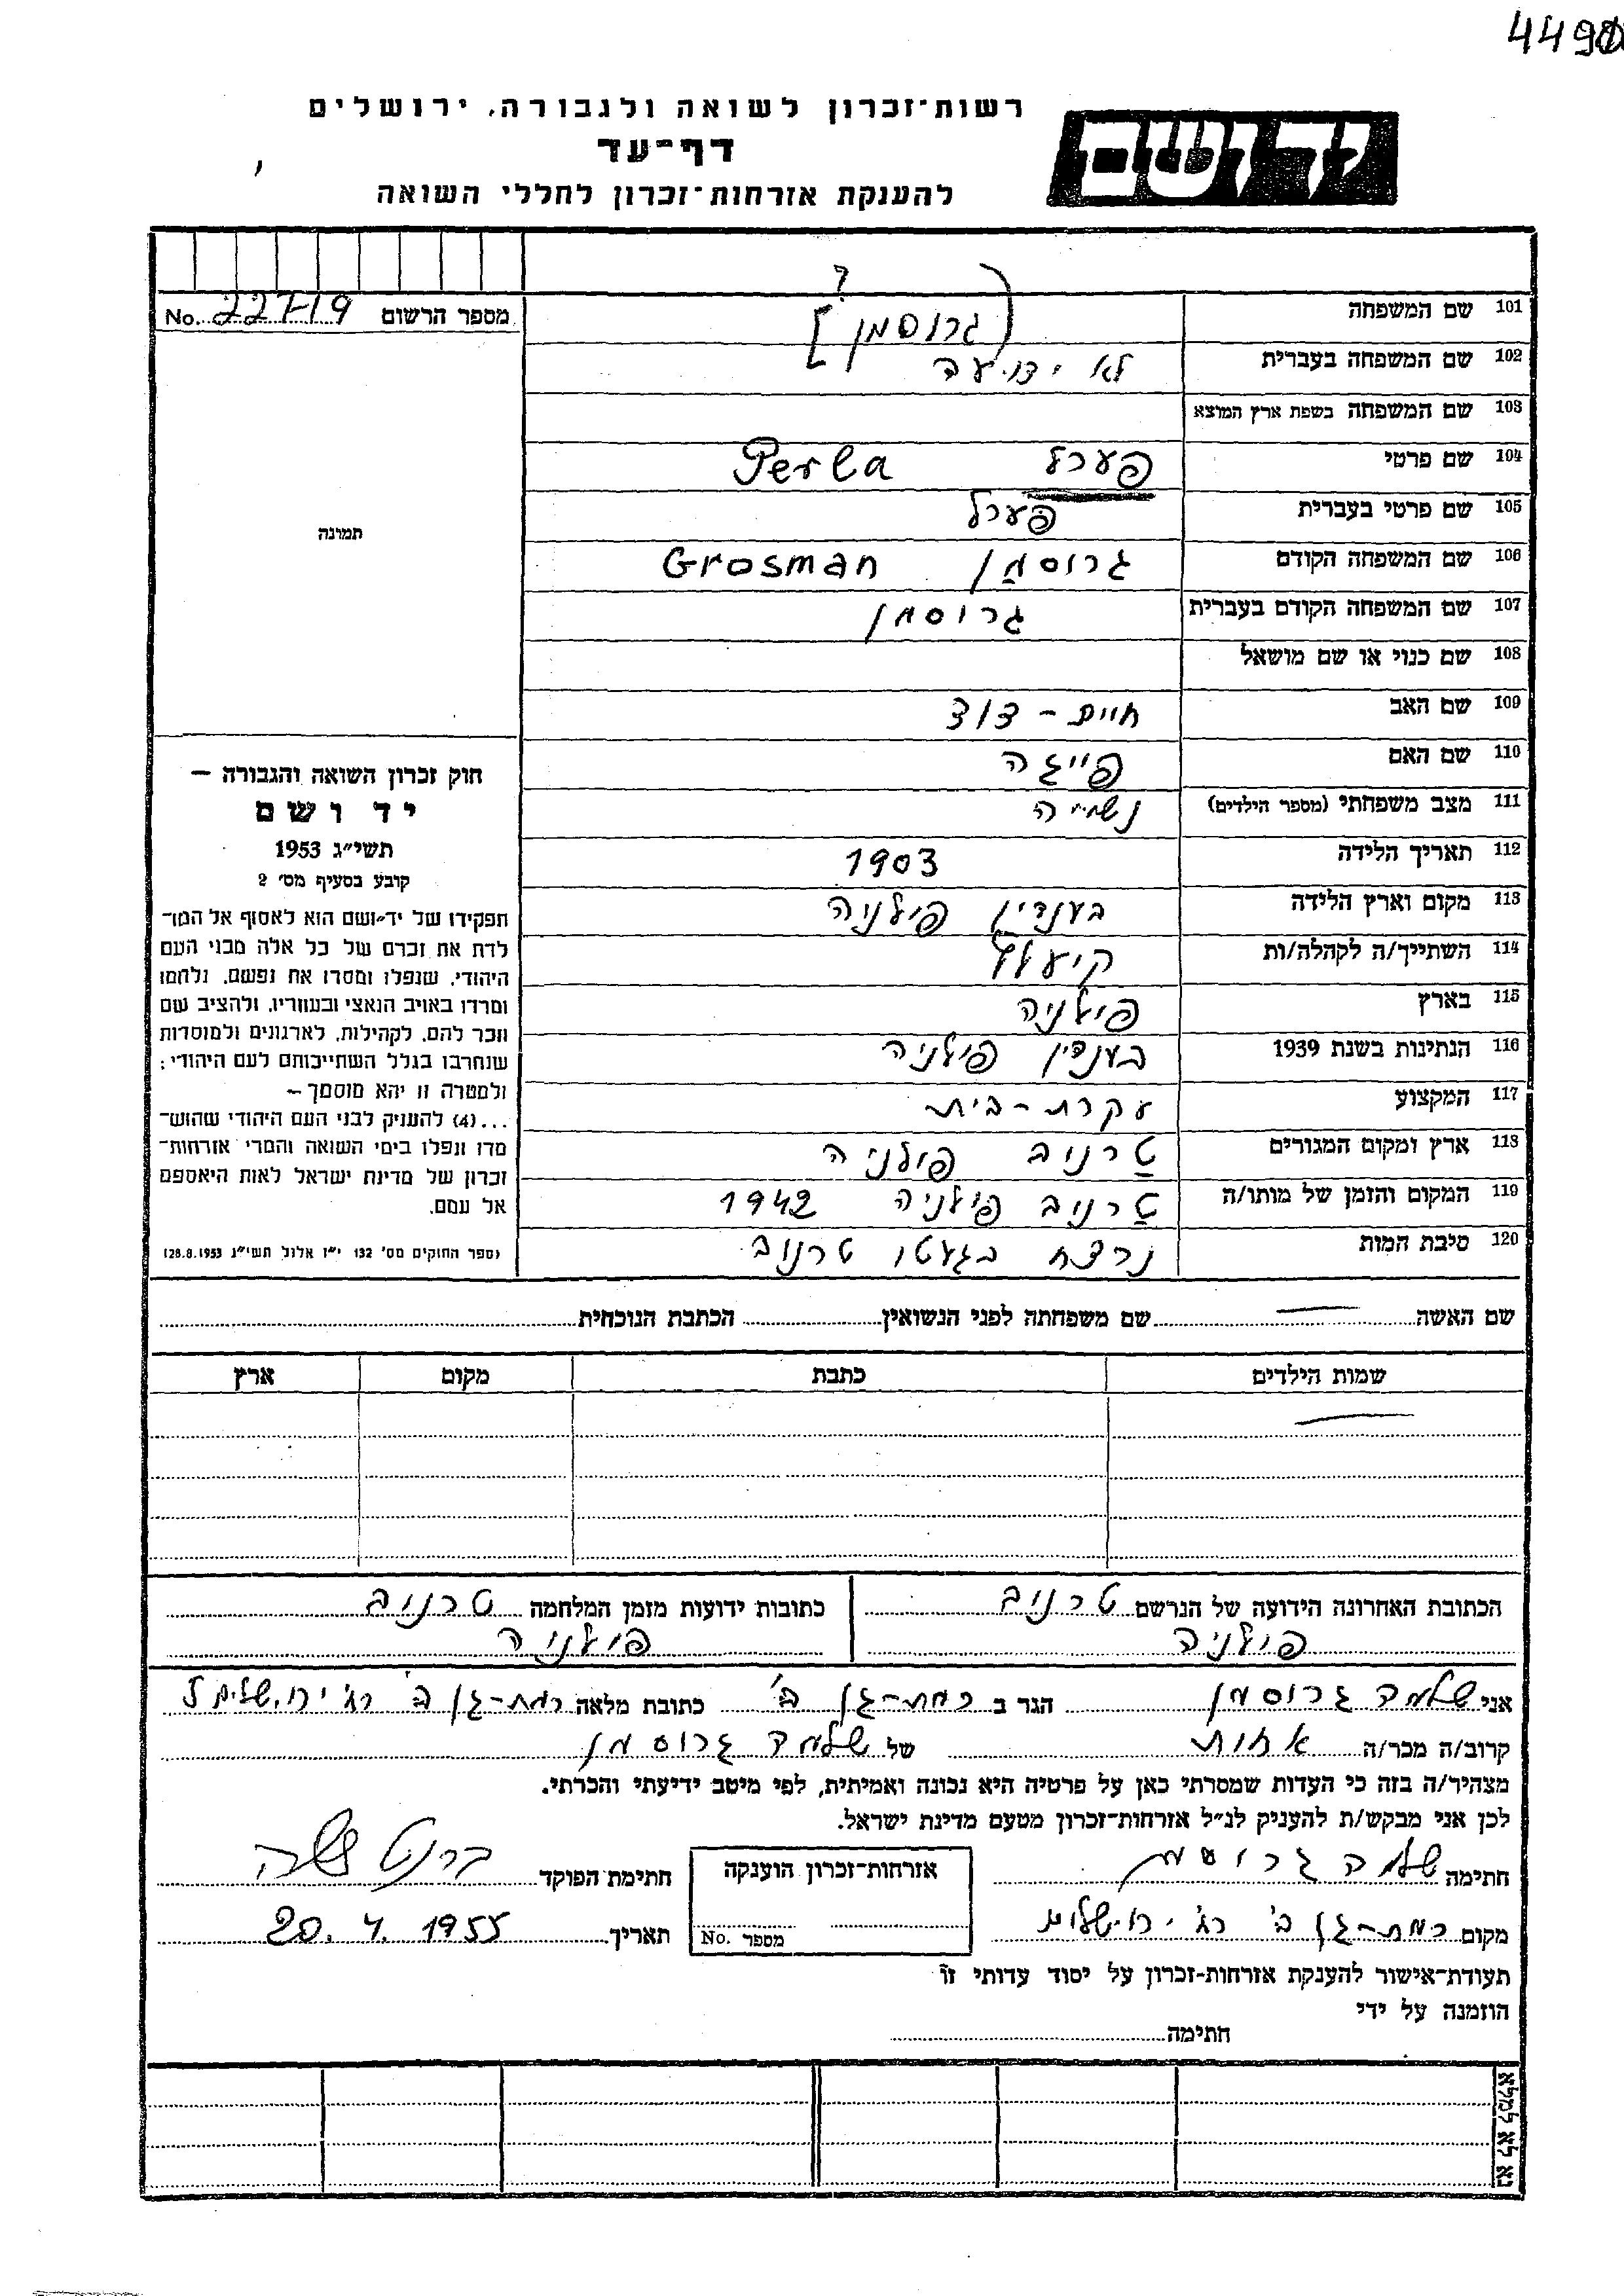 4490
רשות־זכרון לשואה ולגבורה, ירושלים
יד ושם
דף־עד
להענקת אזרחות־זכרון לחללי השואה
מספר הרשום No. 22719
?
101 שם המשפחה [גרוסמן)
102 שם המשפחה בעברית לא ידועה
103 שם המשפחה בשפת ארץ המוצא
104 שם פרטי פערל Perla
105 שם פרטי בעברית פערל
106 שם המשפחה הקודם גרוסמַן Grosman
107 שם המשפחה הקודם בעברית גרוסמן
108 שם כנוי או שם מושאל
109 שם האב חיים - דוד
110 שם האם פייגה
111 מצב משפחתי (מספר הילדים) נשׂויה
112 תאריך הלידה 1903
113 מקום וארץ הלידה בענדין פולניה
114 השתייך/ה לקהלה/ות קיעלץ
115 בארץ פולניה
116 הנתינות בשנת 1939 בענדין פולניה
117 המקצוע עקרת-בית
118 ארץ ומקום המגורים טַרנוב פולניה
119 המקום והזמן של מותו/ה טַרנוב פולניה 1942
120 סיבת המות נרצח בגעטו טרנוב
תמונה
חוק זכרון השואה והגבורה —
יד ושם
תשי״ג 1953
קובע בסעיף מס׳ 2
תפקידו של יד־ושם הוא לאסוף אל המו־
לדת את זכרם של כל אלה מבני העם
היהודי, שנפלו ומסרו את נפשם, נלחמו
ומרדו באויב הנאצי ובעוזריו, ולהציב שם
וזכר להם, לקהילות, לארגונים ולמוסדות
שנחרבו בגלל השתייכותם לעם היהודי;
ולמטרה זו יהא מוסמך —
...(4) להעניק לבני העם היהודי שהוש־
מדו ונפלו בימי השואה והמרי אזרחות־
זכרון של מדינת ישראל לאות היאספם
אל עמם.
(ספר החוקים מס׳ 132 י״ז אלול תשי״ג 28.8.1953)
שם האשה — שם משפחתה לפני הנשואין הכתבת הנוכחית
שמות הילדים כתבת מקום ארץ
—
הכתובת האחרונה הידועה של הנרשם טרנוב
פולניה
כתובות ידועות מזמן המלחמה טרנוב
פולניה
אני שלמה גרוסמן הגר ב רמת-גן ב' כתובת מלאה רמת-גן ב' רח' ירושלים 5
קרוב/ה מכר/ה אחות של שלמה גרוסמן
מצהיר/ה בזה כי העדות שמסרתי כאן על פרטיה היא נכונה ואמיתית, לפי מיטב ידיעתי והכרתי.
לכן אני מבקש/ת להעניק לנ״ל אזרחות־זכרון מטעם מדינת ישראל.
חתימה שלמה גרוסמן אזרחות־זכרון הוענקה חתימת הפוקד ברנט
מקום רמת-גן ב' רח' ירושלים מספר No. תאריך 20. 4. 1955
תעודת־אישור להענקת אזרחות־זכרון על יסוד עדותי זו
הוזמנה על ידי
חתימה
נא לא למלא